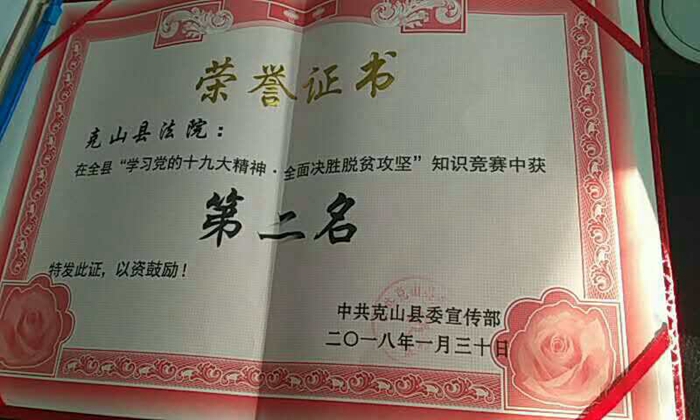 荣誉证书
克山县法院：
在全县“学习党的十九大精神·全面决胜脱贫攻坚”知识竞赛中获
第二名
特发此证，以资鼓励！
中共克山县委宣传部
二〇一八年一月三十日